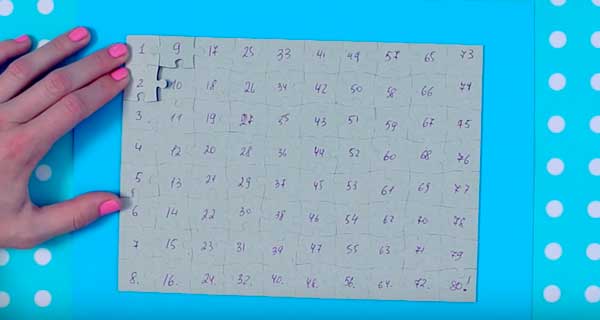 1 9 17 25 33 41 49 57 65 73
2 10 18 26 34 42 50 58 66 74
3. 11 19 27 35 43 51 59 67 75
4 12 20 28 36 44 52 60 68 76
5 13 21 29 37 45 53 61 69 77
6 14 22 30 38 46 54 62 70 78
7 15 23 31 39 47 55 63 71 79
8. 16. 24. 32. 40. 48. 56. 64. 72. 80!